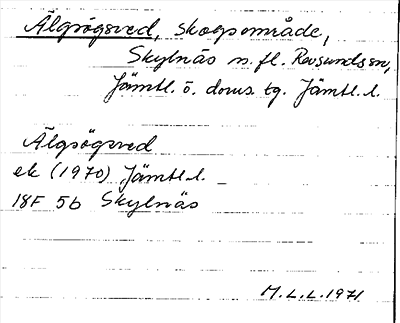 Älgsögsved, skogsområde,
Skylnäs n. fl. Revsunds sn,
Jämtl. ö. doms. tg. Jämtl. l.
Älgsögsved
ek (1970) Jämtl. l.
18F 5b Skylnäs
M.L.L. 1971